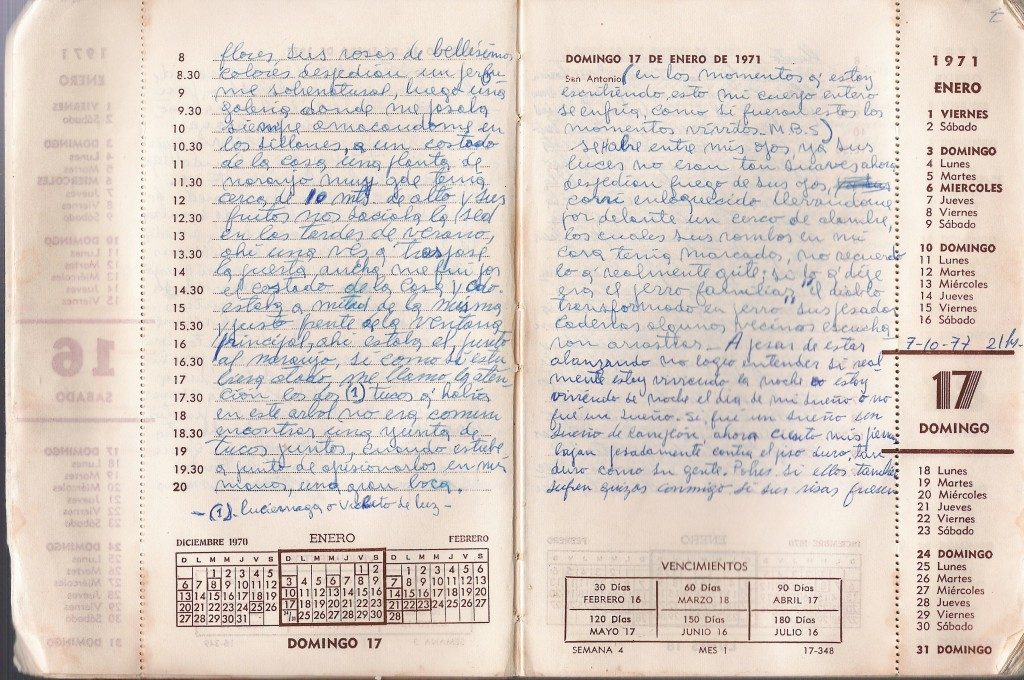 8 flores sus rosas de bellísimos
8.30 colores despedian un perfu
9 me sobrenatural, luego una
9.30 galeria donde me pasaba
10 siempre amacandome en
10.30 los sillones, a un costado
11 de la casa una planta de
11.30 naranjo muy gde tenia
12 cerca de 10 mts de alto y sus
12.30 frutos nos saciaba la sed
13 en las tardes de verano,
13.30 ahi una vés q' traspasé
14 la puerta ancha me fui por
14.30 el costado de la casa y cdo
15 estaba a mitad de la misma
15.30 y justo frente de la ventana
16 principal, ahi estaba el, junto
16.30 al naranjo, si como si estu
17 biera atado, me llamo la aten
17.30 ción los dos (1) tucos q' habia
18 en este arbol no era comun
18.30 encontrar una yunta de
19 tucos juntos, cuando estube
19.30 a punto de apisionarlos en mis
20 manos, una gran boca.
- (1) Luciernaga o vichito de luz -
DICIEMBRE 1970 ENERO FEBRERO
D L M M J V S D L M M J V S D L M M J V S
1 2 3 4 5 1 2 1 2 3 4 5 6
6 7 8 9 10 11 12 3 4 5 6 7 8 9 7 8 9 10 11 12 13
13 14 15 16 17 18 19 10 11 12 13 14 15 16 14 15 16 17 18 19 20
20 21 22 23 24 25 26 17 18 19 20 21 22 23 21 22 23 24 25 26 27
27 28 29 30 31 24/31 25 26 27 28 29 30 28
DOMINGO 17
DOMINGO 17 DE ENERO DE 1971
San Antonio (en los momentos q' estoy
escribiendo esto mi cuerpo entero
se enfria, como si fueran estos los
momentos vividos. M.B.S)
se abre entre mis ojos ya sus
luces no eran tan suaves ahora
despedian fuego de sus ojos,
corri enloquecido llevandome
por delante un cerco de alambre,
los cuales sus rombos en mi
cara tenia marcados, no recuerdo
lo q' realmente grité; si lo q' dije
era el perro familiar, "el diablo
transformado en perro" sus pesadas
cadenas algunos vecinos escucha
ron arrastrar. - A pesar de estar
alcanzando no logro entender si real
mente estoy viviendo la noche o estoy
viviendo de noche el dia de mi sueño o no
fué un sueño. Si fué un sueño son
sueño de ahora cierto mis piernas
bajan pesadamente contra el piso duro, tan
duro como su gente. Pobres si ellos tambien
sufren quizas conmigo si sus risas fuesen
VENCIMIENTOS
30 Días 60 Días 90 Días
FEBRERO 16 MARZO 18 ABRIL 17
120 Días 150 Días 180 Días
MAYO 17 JUNIO 16 JULIO 16
SEMANA 4 MES 1 17-348
1971
ENERO
1 VIERNES
2 Sábado
3 DOMINGO
4 Lunes
5 Martes
6 MIERCOLES
7 Jueves
8 Viernes
9 Sábado
10 DOMINGO
11 Lunes
12 Martes
13 Miércoles
14 Jueves
15 Viernes
16 Sábado
7-10-77 21 hs.
17
DOMINGO
18 Lunes
19 Martes
20 Miércoles
21 Jueves
22 Viernes
23 Sábado
24 DOMINGO
25 Lunes
26 Martes
27 Miércoles
28 Jueves
29 Viernes
30 Sábado
31 DOMINGO